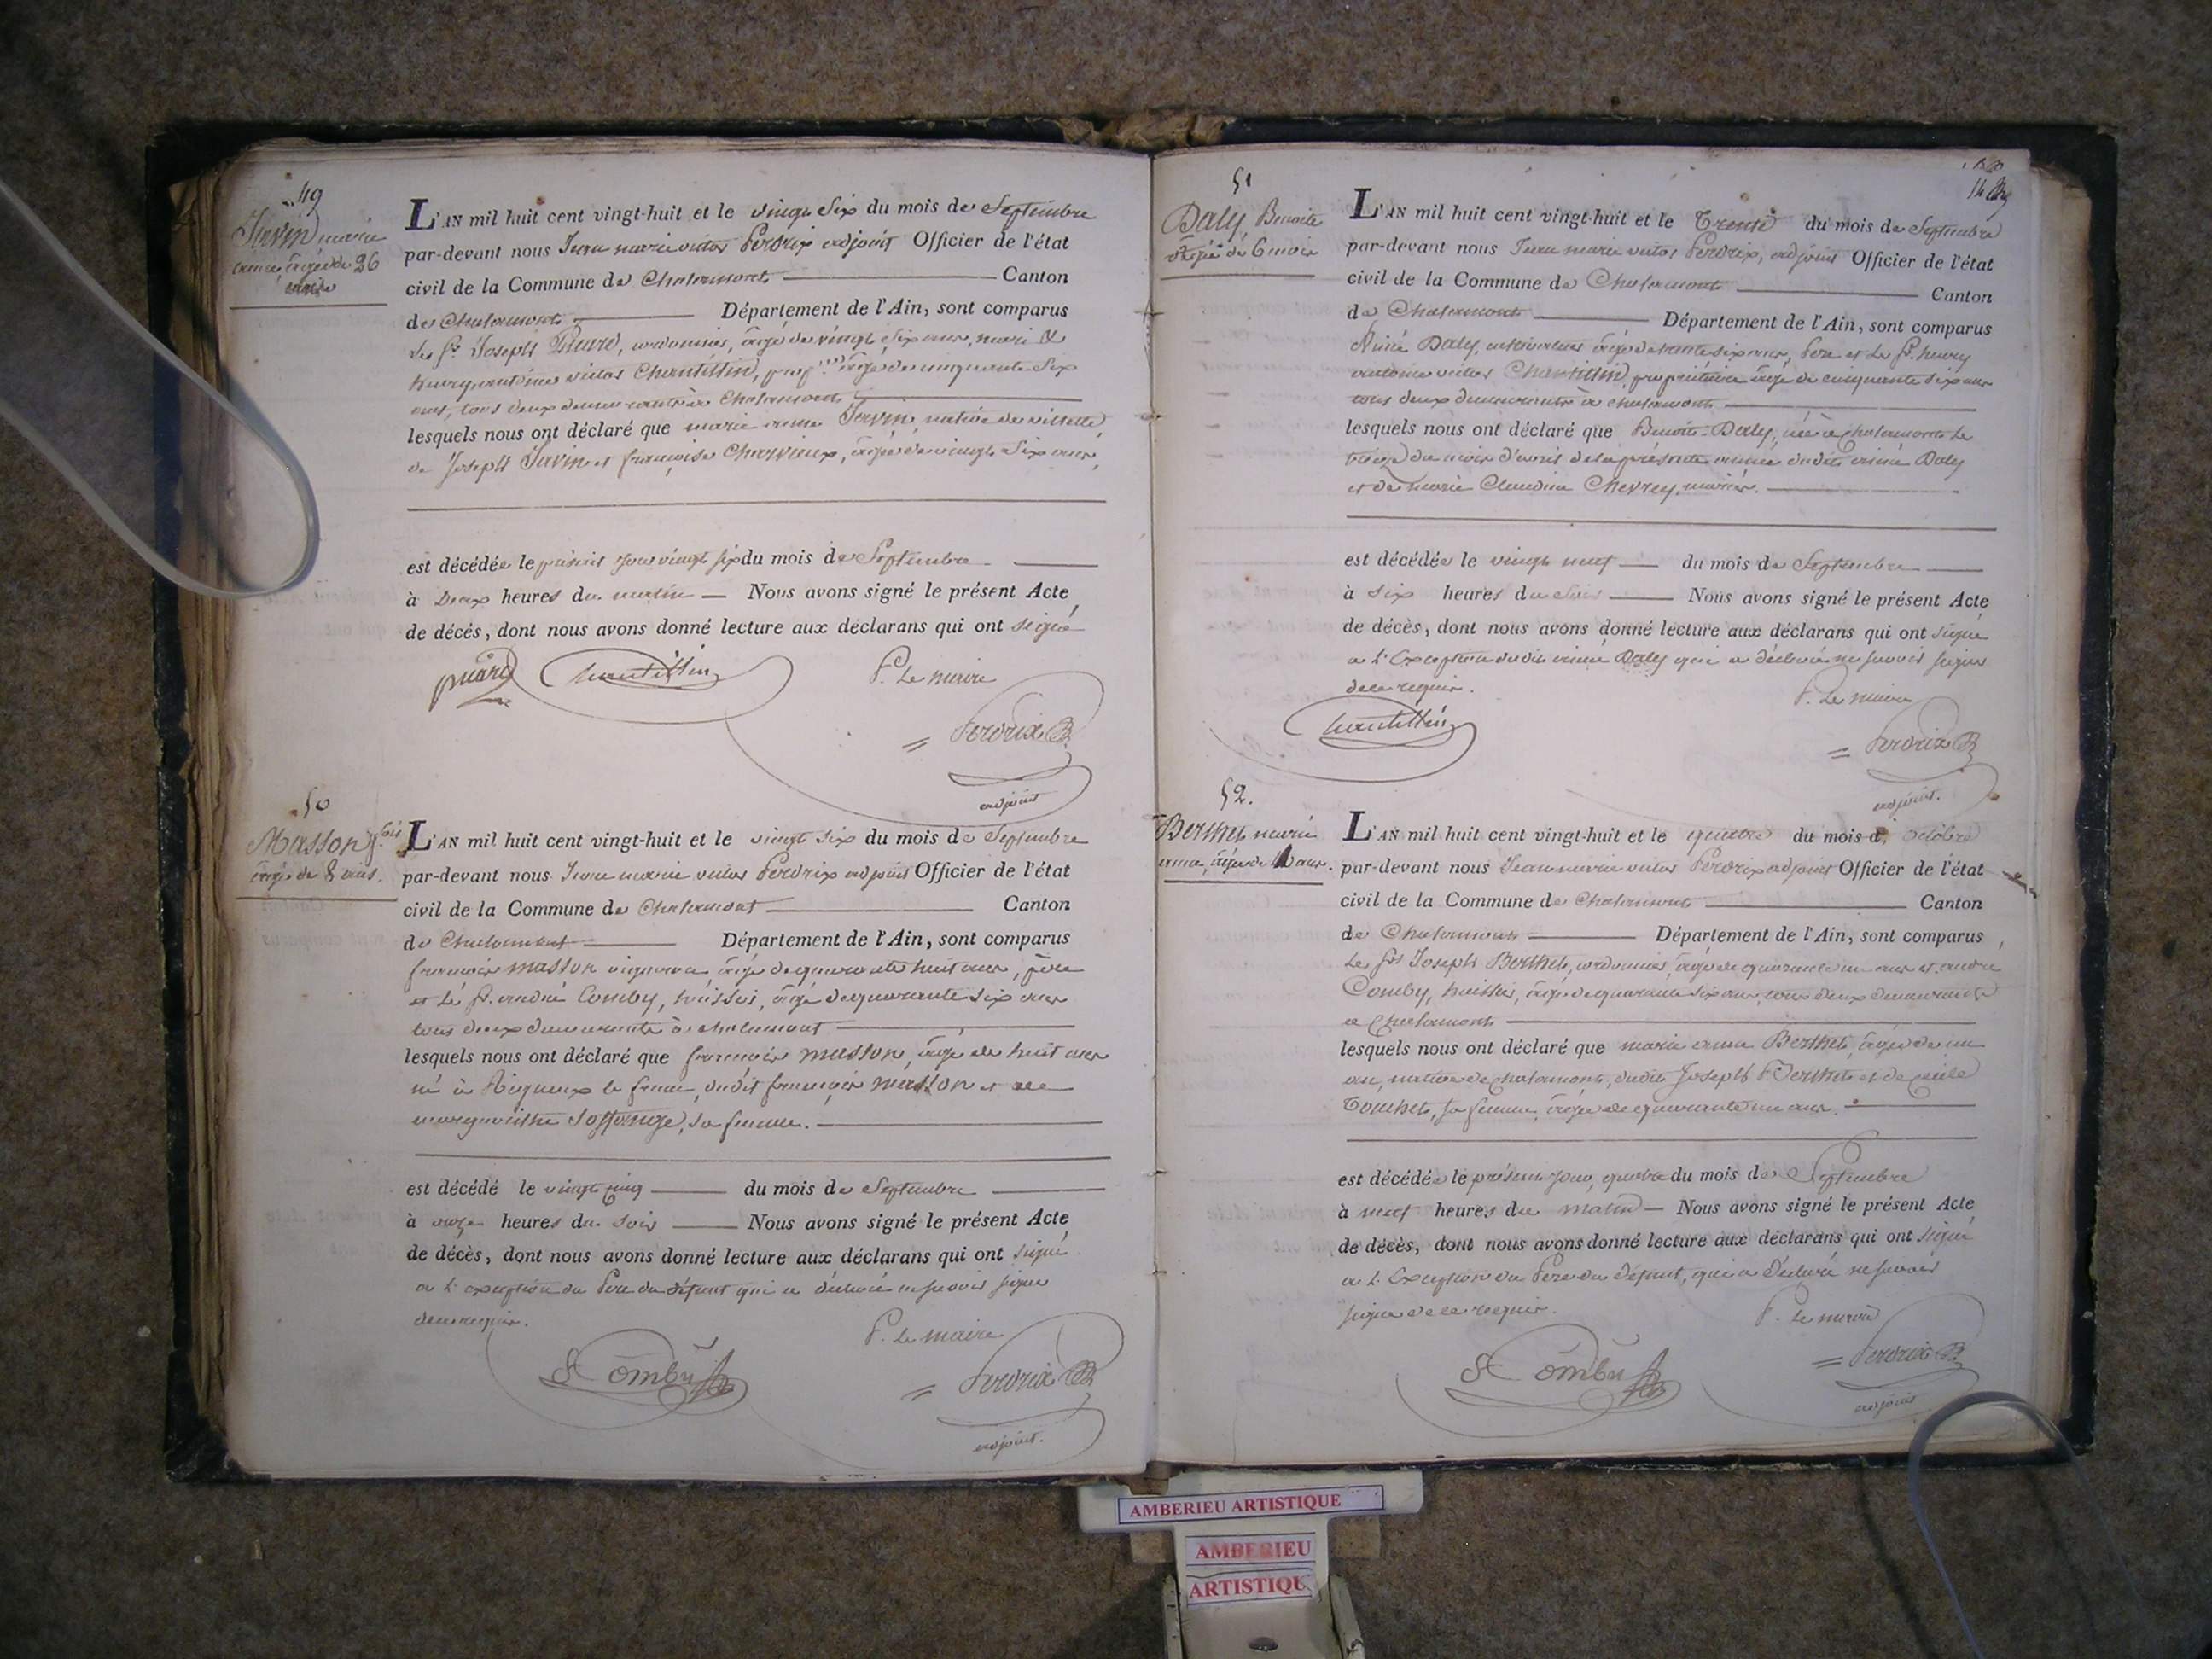 49
marie
anne, âgée de 26
L'AN mil huit cent vingt-huit et le vingt six du mois de Septembre
par-devant nous Jean marie victor Perdrix adjoint Officier de l'état
civil de la Commune de Chalamont Canton
de Chalamont Département de l'Ain, sont comparus
les Sr Joseph cordonnier, âgé de vingt six ans, mari &
henry antoine victor Chantillin, âgé de cinquante Six
ans, tous deux demeurants à Chalamont
lesquels nous ont déclaré que marie anne native de villette,
de Joseph et françoise Charvieux, âgée de vingt Six ans,
est décédée le présent jour vingt six du mois de Septembre
à Deux heures du matin Nous avons signé le présent Acte
de décés, dont nous avons donné lecture aux déclarans qui ont signé
Chantillin
P. Le maire
Perdrix
adjoint
50
Masson fçois
âgé de 8 ans.
L'AN mil huit cent vingt-huit et le vingt six du mois de Septembre
par-devant nous Jean marie victor Perdrix adjoint Officier de l'état
civil de la Commune de Chalamont Canton
de Chalamont Département de l'Ain, sont comparus
françois masson vigneron âgé de quarante huit ans, père
et Le Sr. andré Comby, huissier, âgé de quarante six ans
tous deux demeurants à chalamont
lesquels nous ont déclaré que françois masson, âgé de huit ans
né à Rigneux le franc, dudit françois masson et de
marguerithe sa femme.
est décédé le vingt cinq du mois de Septembre
à onze heures du soir Nous avons signé le présent Acte
de décès, dont nous avons donné lecture aux déclarans qui ont signé
a l'exception du Père du défunt qui a déclaré ne savoir signer
de ce requis.
P. le maire
Comby
Perdrix
adjoint.
51
Daly, Benoite
âgée de 6 mois
L'AN mil huit cent vingt-huit et le Trente du mois de Septembre
par-devant nous Jean marie victor Perdrix, adjoint Officier de l'état
civil de la Commune de Chalamont Canton
de Chalamont Département de l'Ain, sont comparus
Aimé Daly, cultivateur âgé de trente six ans, Père et Le Sr. henry
antoine victor Chantillin, propriétaire âgé de cinquante six ans
tous deux demeurants à chalamont
lesquels nous ont déclaré que Benoite Daly, née à Chalamont le
treize du mois d'avril de la présente année dudit aimé Daly
et de marie Claudine Chevrey, mariés.
est décédée le vingt neuf du mois de Septembre
à six heures du soir Nous avons signé le présent Acte
de décès, dont nous avons donné lecture aux déclarans qui ont signé
a l'Exception dudit aimé Daly qui a déclaré ne savoir signer
de ce requis.
P. Le maire
Chantillin
Perdrix
adjoint.
52.
Berthet marie
anne, âgée de ans.
L'AN mil huit cent vingt-huit et le quatre du mois d' octobre
par-devant nous Jean marie victor Perdrix adjoint Officier de l'état
civil de la Commune de Chalamont Canton
de Chalamont Département de l'Ain, sont comparus
Les Srs Joseph Berthet, cordonnier, âgé de quarante un ans et andré
Comby, huissier, âgé de quarante six ans, tous deux demeurants
à Chalamont
lesquels nous ont déclaré que marie anne Berthet, âgée de un
an, native de Chalamont, dudit Joseph Berthet et de
sa femme, âgée de quarante un ans.
est décédée le présent jour, quatre du mois de Septembre
à neuf heures du matin Nous avons signé le présent Acte
de décès, dont nous avons donné lecture aux déclarans qui ont signé
a l'Exception du Père du défunt, qui a déclaré ne savoir
signer de ce requis.
P. le maire
Comby
Perdrix
adjoint
AMBERIEU ARTISTIQUE
AMBERIEU
ARTISTIQU